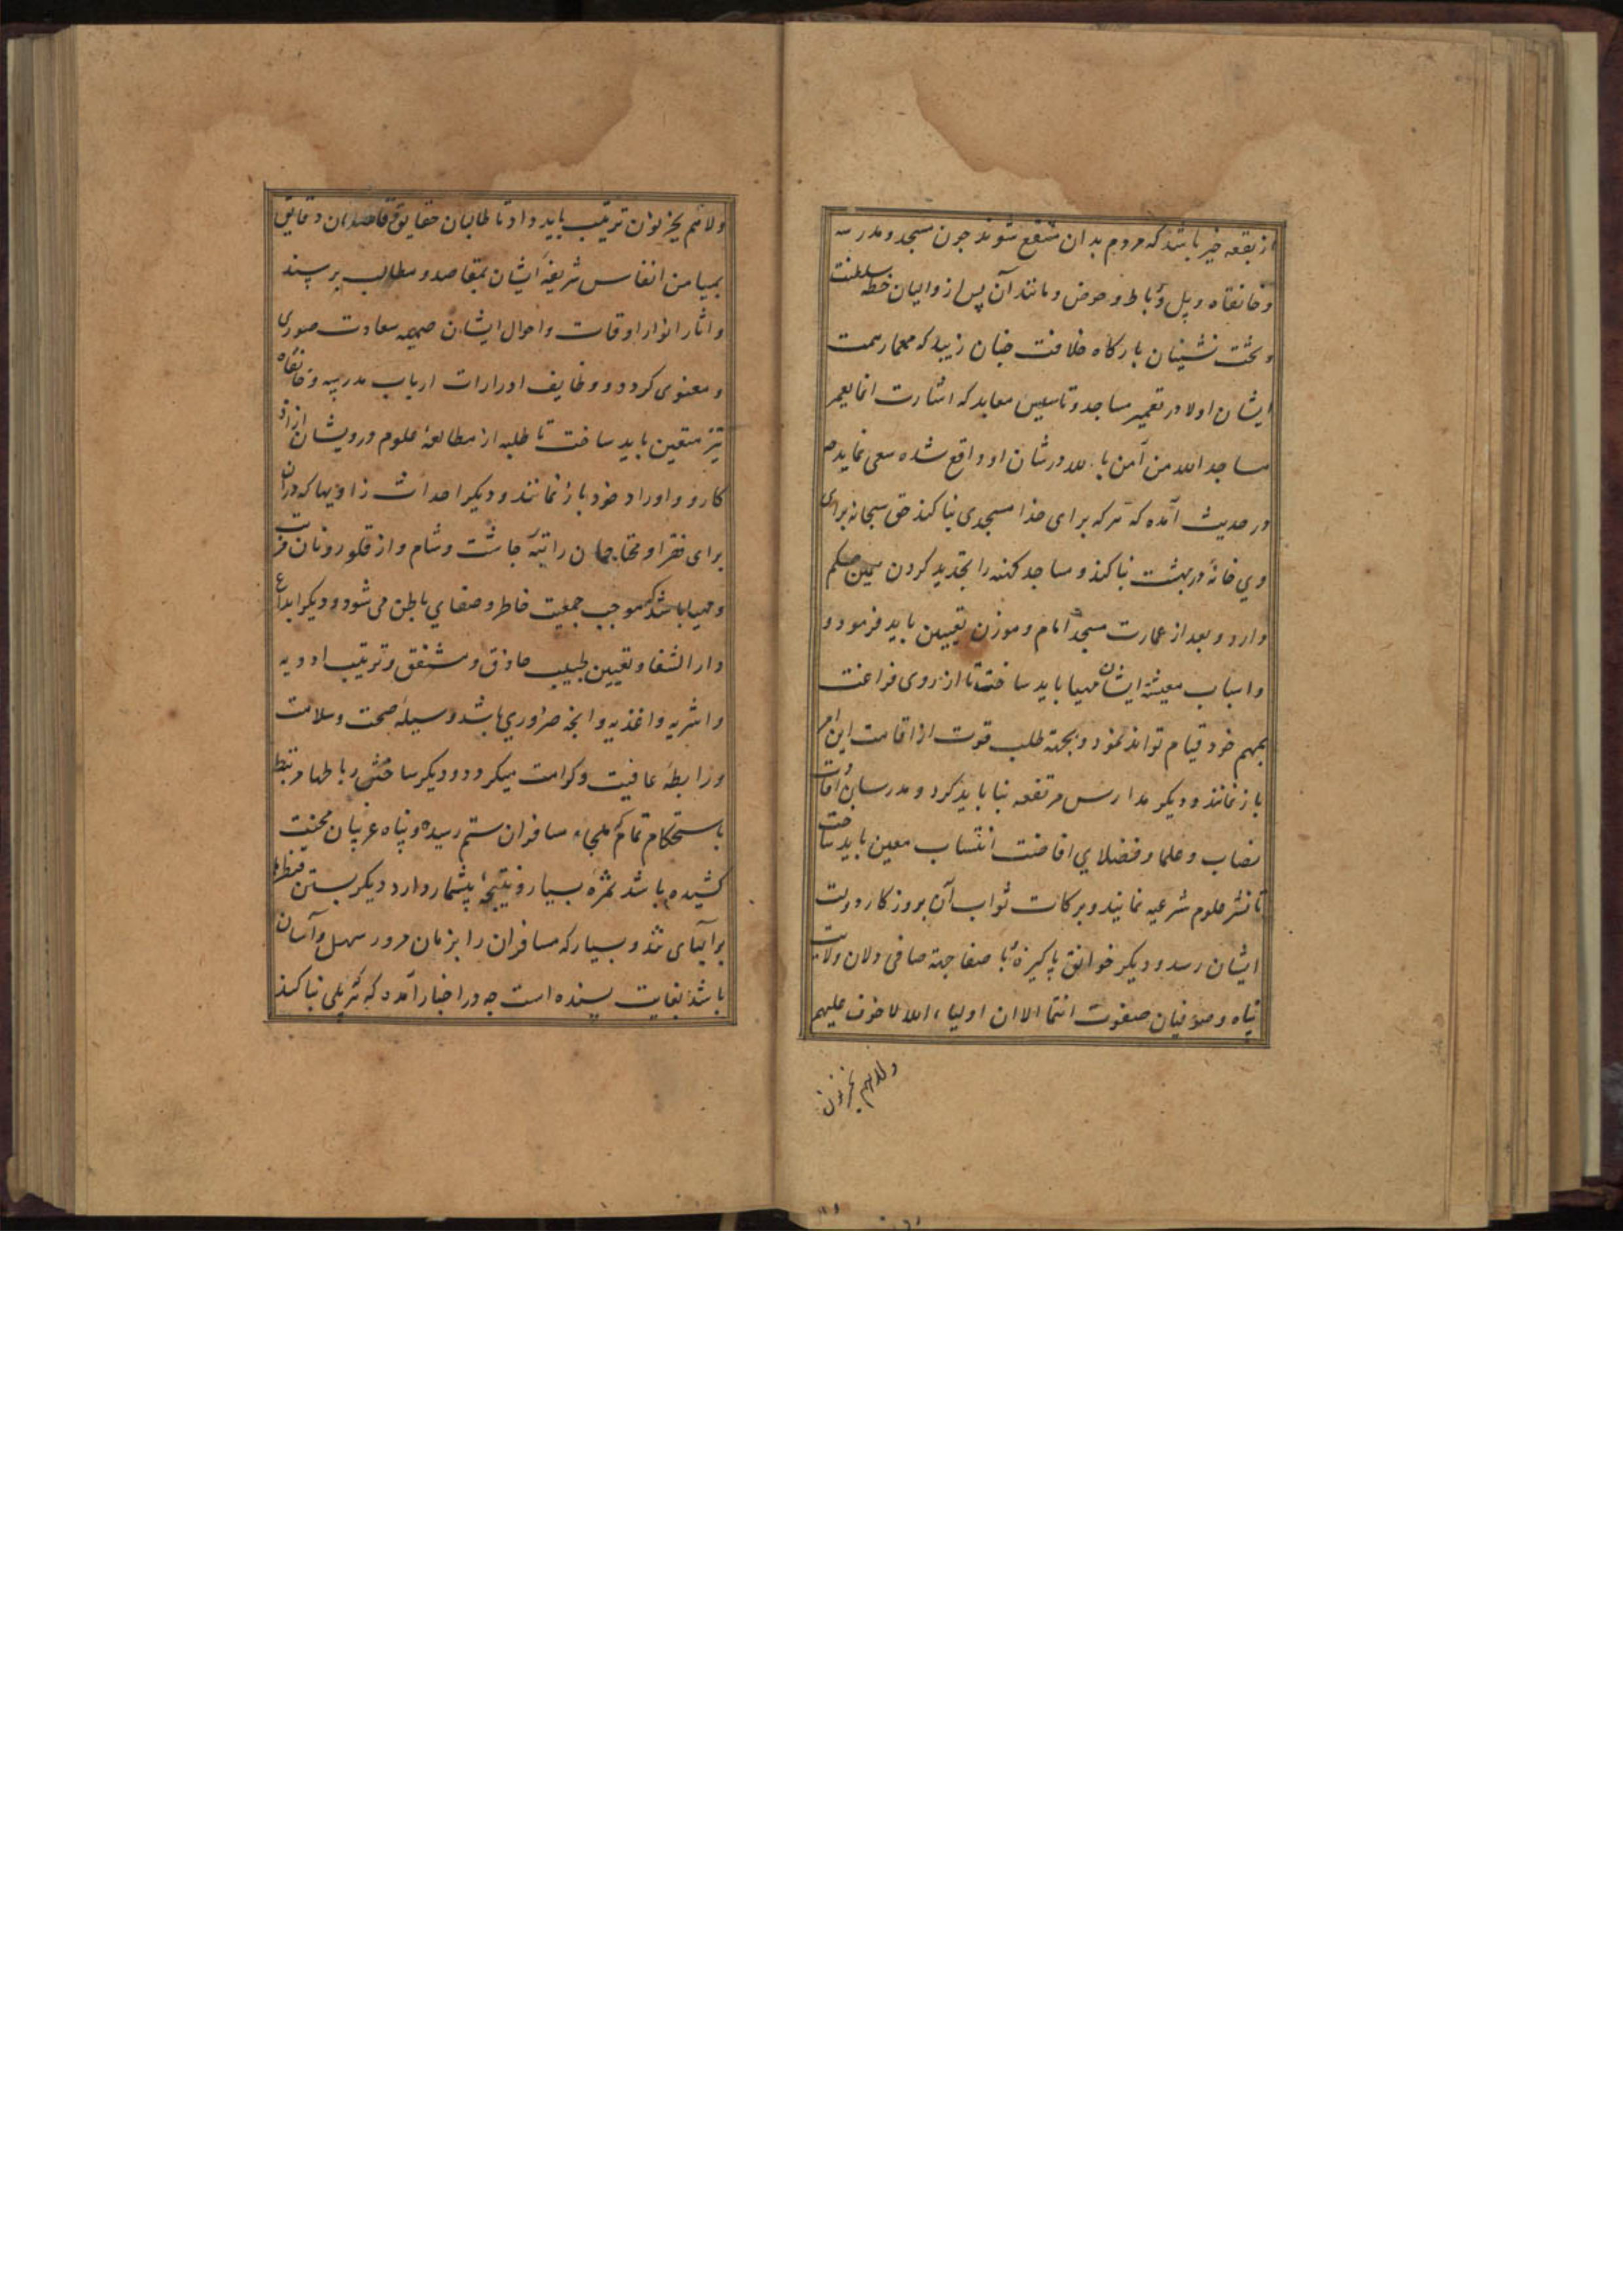 از بقعه خیر باشد که مردم بدان منتفع شوند چون مسجد و مدرسه
و خانقاه و پل و رباط و حوض و مانند آن پس از والیان خطه سلطنت
و تخت نشینان بارکاه خلافت چنان زیبد که معمار همت
ایشان اولا در تعمیر مساجد و تاسیس معابد که اشارت انما یعمر
مساجد الله من آمن بالله در شان او واقع شده سعی نماید
در حدیث آمده که هر که برای خدا مسجدی بنا کند حق سبحانه برای
وی خانهٔ در بهشت بنا کند و مساجد کهنه را تجدید کردن همین حکم
دارد و بعد از عمارت مسجد امام و موزن تعیین باید فرمود و
و اسباب معیشة ایشان مهیا باید ساخت تا از روی فراغت
بمهم خود قیام تواند نمود و بجهة طلب قوت از اقامت این امر
باز نمانند و دیکر مدارس مرتفعه بنا باید کرد و مدرسان
نصاب و علما و فضلای افاضت انتساب معین باید ساخت
تا نشر علوم شرعیه نمایند و برکات ثواب آن بروزکار دولت
ایشان رسد و دیکر خوانق پاکیزهٔ با صفا جهة صافی دلان ولایت
پناه و صوفیان صفوت انتما الا ان اولیاء الله لا خوف علیهم
ولا هم یحزنون
ولا هم یحزنون ترتیب باید داد تا طالبان حقایق و قاصدان دقایق
بمیامن انفاس شریفهٔ ایشان بمقاصد و مطالب برسند
و اثار انوار اوقات و احوال ایشان ضمیمه سعادت صوری
و معنوی کردد و وظایف ادرارات ارباب مدرسه و خانقاه
نیز متعین باید ساخت تا طلبه از مطالعهٔ علوم و درویشان از
کار و اوراد خود باز نمانند و دیکر احداث زاویها که دران
برای فقرا و محتاجان راتبهٔ چاشت و شام و از قلور و نان مرتب
و مهیا باشد که موجب جمعیت خاطر و صفای باطن می شود و دیکر ابداع
دار الشفا و تعیین طبیب حاذق و مشفق و ترتیب ادویه
و اشربه و اغذیه و انچه ضروری باشد وسیلهٔ صحت و سلامت
و رابطهٔ عافیت و کرامت میکردد و دیکر ساختن رباطها مرتبط
باستحکام تمام که ملجاء مسافران ستم رسیده و پناه غریبان محنت
کشیده باشد ثمرهٔ بسیار و نتیجهٔ بیشمار دارد دیکر بستن قنطرها
بر آبهای تند و بسیار که مسافران را بر آن مرور سهل و آسان
باشد بغایت پسندیده است چه در اخبار آمده که هر که پلی بنا کند